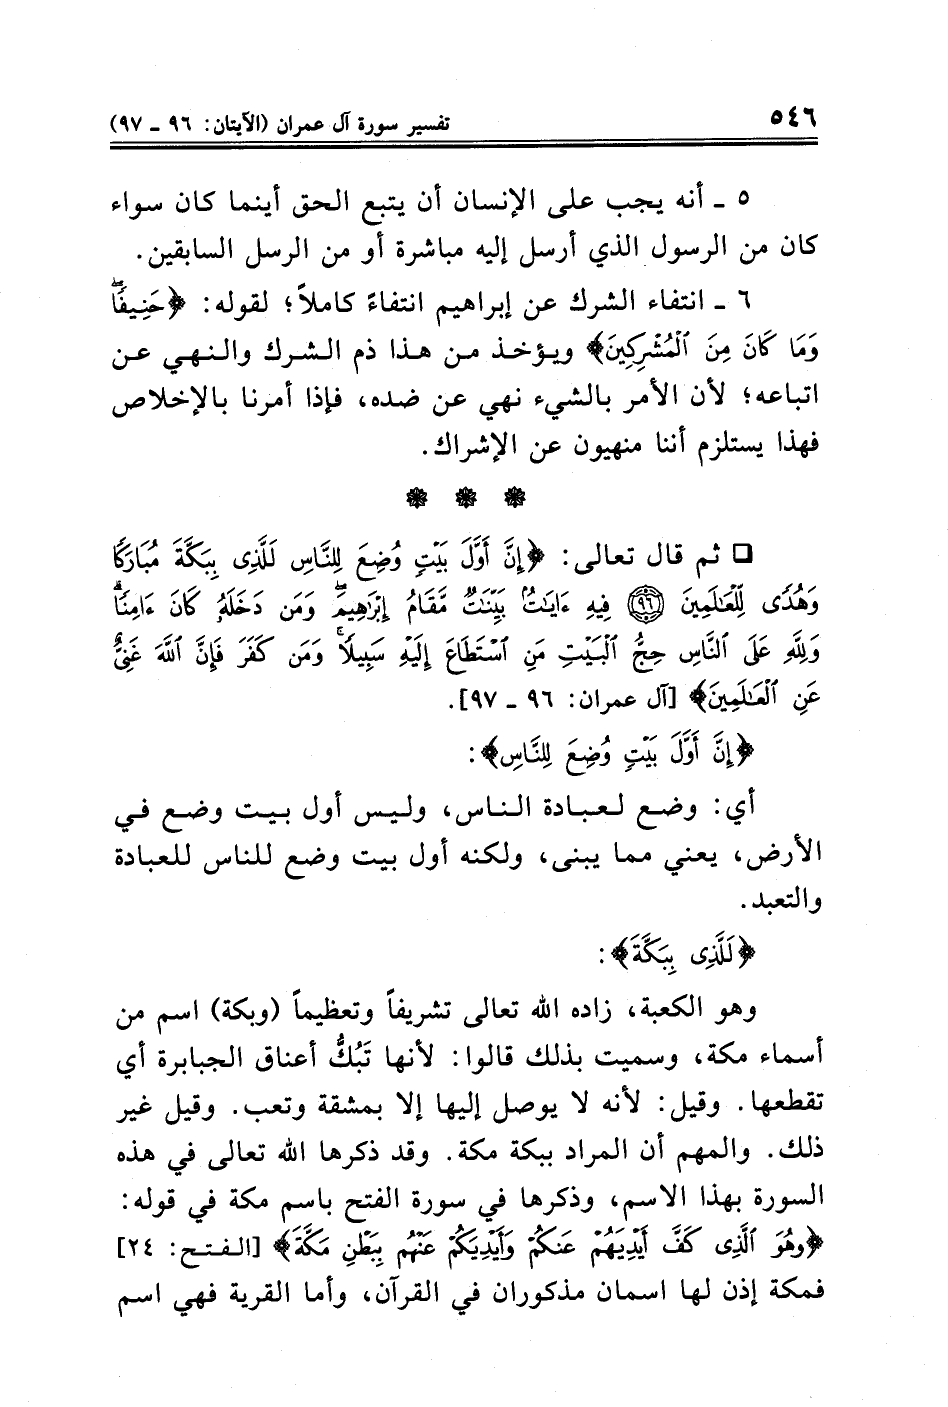 ٥٤٦
تفسير سورة آل عمران (الآيتان: ٩٦ ـ ٩٧)
٥ ـ أنه يجب على الإنسان أن يتبع الحق أينما كان سواء
كان من الرسول الذي أرسل إليه مباشرة أو من الرسل السابقين.
٦ ـ انتفاء الشرك عن إبراهيم انتفاءً كاملاً؛ لقوله: ﴿حَنِيفًاۖ
وَمَا كَانَ مِنَ ٱلْمُشْرِكِينَ﴾ ويؤخذ من هذا ذم الشرك والنهي عن
اتباعه؛ لأن الأمر بالشيء نهي عن ضده، فإذا أمرنا بالإخلاص
فهذا يستلزم أننا منهيون عن الإشراك.
❁ ❁ ❁
❑ ثم قال تعالى: ﴿إِنَّ أَوَّلَ بَيْتٍ وُضِعَ لِلنَّاسِ لَلَّذِى بِبَكَّةَ مُبَارَكًا
وَهُدًى لِّلْعَـٰلَمِينَ ۝٩٦ فِيهِ ءَايَـٰتٌۢ بَيِّنَـٰتٌ مَّقَامُ إِبْرَٰهِيمَۖ وَمَن دَخَلَهُۥ كَانَ ءَامِنًاۗ
وَلِلَّهِ عَلَى ٱلنَّاسِ حِجُّ ٱلْبَيْتِ مَنِ ٱسْتَطَاعَ إِلَيْهِ سَبِيلًاۚ وَمَن كَفَرَ فَإِنَّ ٱللَّهَ غَنِىٌّ
عَنِ ٱلْعَـٰلَمِينَ﴾ [آل عمران: ٩٦ ـ ٩٧].
﴿إِنَّ أَوَّلَ بَيْتٍ وُضِعَ لِلنَّاسِ﴾:
أي: وضع لعبادة الناس، وليس أول بيت وضع في
الأرض، يعني مما يبنى، ولكنه أول بيت وضع للناس للعبادة
والتعبد.
﴿لَلَّذِى بِبَكَّةَ﴾:
وهو الكعبة، زاده الله تعالى تشريفاً وتعظيماً (وبكة) اسم من
أسماء مكة، وسميت بذلك قالوا: لأنها تَبُكُّ أعناق الجبابرة أي
تقطعها. وقيل: لأنه لا يوصل إليها إلا بمشقة وتعب. وقيل غير
ذلك. والمهم أن المراد ببكة مكة. وقد ذكرها الله تعالى في هذه
السورة بهذا الاسم، وذكرها في سورة الفتح باسم مكة في قوله:
﴿وَهُوَ ٱلَّذِى كَفَّ أَيْدِيَهُمْ عَنكُمْ وَأَيْدِيَكُمْ عَنْهُم بِبَطْنِ مَكَّةَ﴾ [الفتح: ٢٤]
فمكة إذن لها اسمان مذكوران في القرآن، وأما القرية فهي اسم